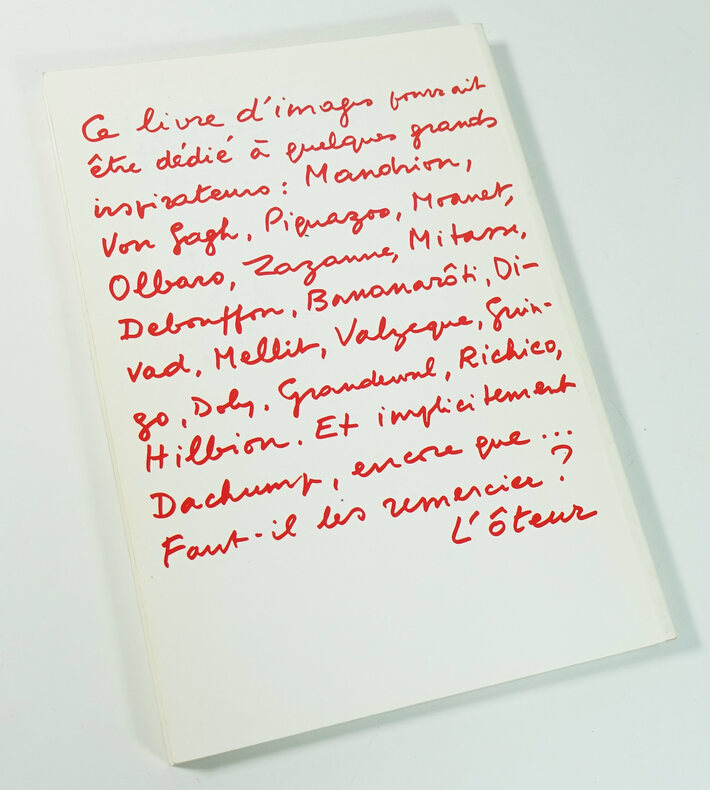 Ce livre d'images pourrait
être dédié à quelques grands
inspirateurs : Mandrion,
Von Gagh, Piquazoo, Moanet,
Olbaro, Zazanne, Mitasse,
Debouffon, Bananarôti, Di-
vad, Mellit, Valzeque, Guin-
go, Doly, Grandewul, Richico,
Hilbion. Et implicitement
Dachump, encore que ...
Faut-il les remercier ?
L'ôteur